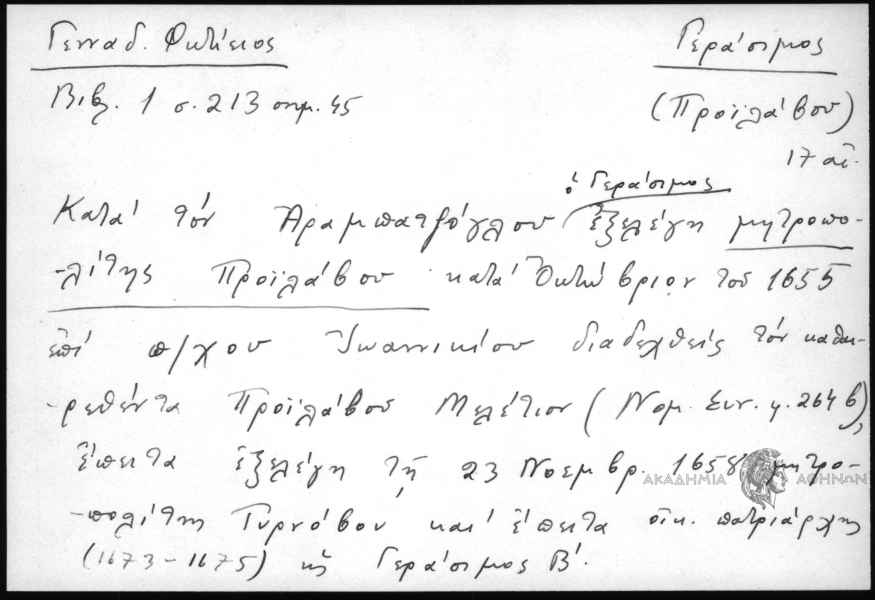 Γενναδ. Φωτίειος
Γεράσιμος
Βιβλ. 1 σ. 213 σημ. 45
(Προϊλάβου)
17 αἰ.
ὁ Γεράσιμος
Κατά τόν Ἀραμπατζόγλου ἐξελέγη μητροπο-
-λίτης Προϊλάβου κατά Ὀκτώβριον τοῦ 1655
ἐπί π/χου Ἰωαννικίου διαδεχθείς τόν καθαι-
-ρεθέντα Προϊλάβου Μελέτιον (Νομ. Συν. γ. 264 β),
ἔπειτα ἐξελέγη τῇ 23 Νοεμβρ. 1658 μητρο-
ΑΚΑΔΗΜΙΑ ΑΘΗΝΩΝ
-πολίτης Τυρνόβου καί ἔπειτα οἰκ. πατριάρχης
(1673-1675) ὡς Γεράσιμος Β΄.